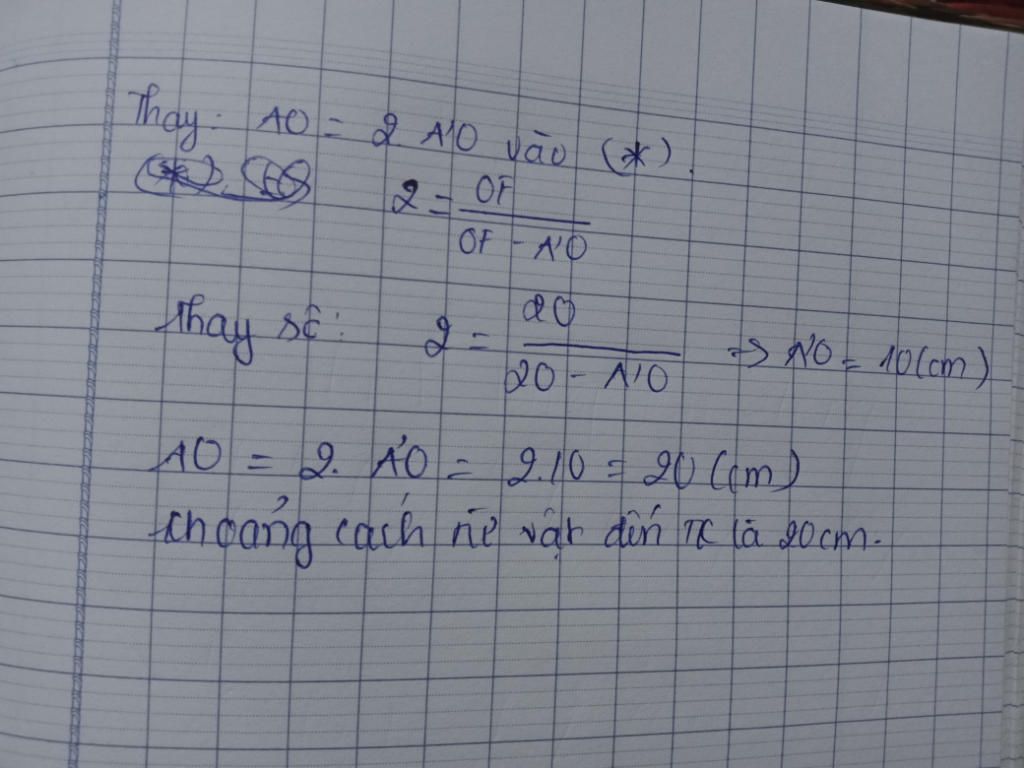 Thay: AO = 2 A'O vào (*).
2 = OF / OF - A'O
Thay số: 2 = 20 / 20 - A'O => A'O = 10 (cm)
AO = 2. A'O = 2.10 = 20 (cm)
Khoảng cách từ vật đến TK là 20cm.